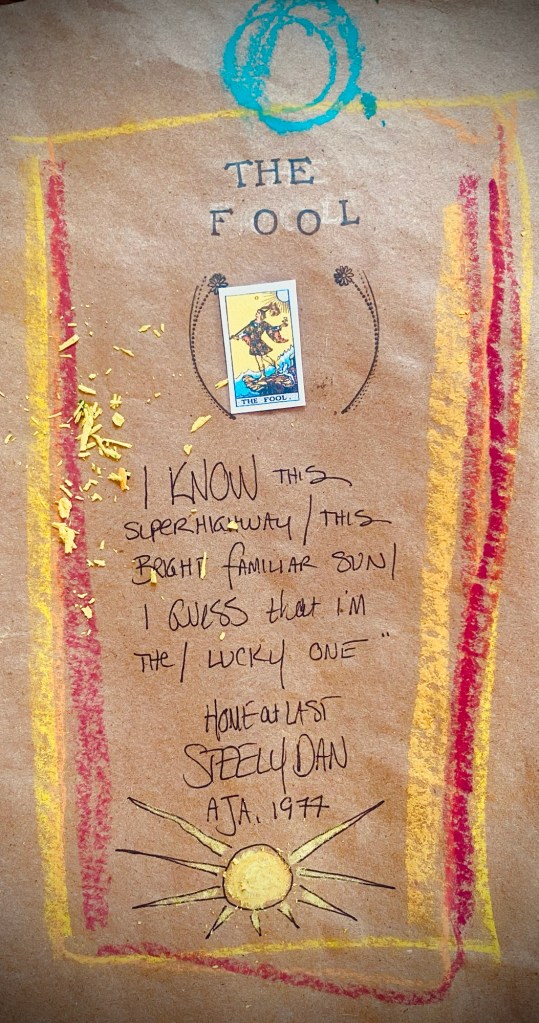 THE
FOOL
0
THE FOOL.
I KNOW THIS
SUPERHIGHWAY / THIS
BRIGHT FAMILIAR SUN /
I GUESS that I'M
THE / LUCKY ONE "
HOME at LAST
STEELY DAN
AJA, 1977